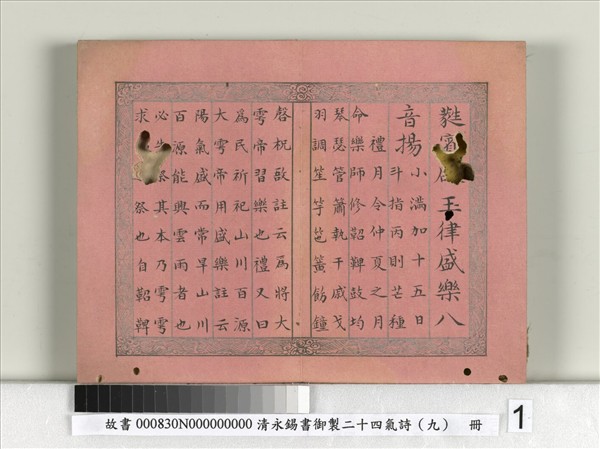 蕤賓玉律盛樂八
音揚
小滿加十五日
斗指丙則芒種
禮月令仲夏之月
命樂師修鞀鞞鼓均
琴瑟管簫執干戚戈
羽調笙竽竾簧飭鐘
磬柷敔註云為將大
雩帝習樂也禮又曰
為民祈祀山川百源
大雩帝用盛樂註云
陽氣盛而常旱山川
百源能興雲雨者也
必先祭其本乃雩雩
求祭也自鞀鞞
故書 000830N000000000 清永錫書御製二十四氣詩（九） 冊
1